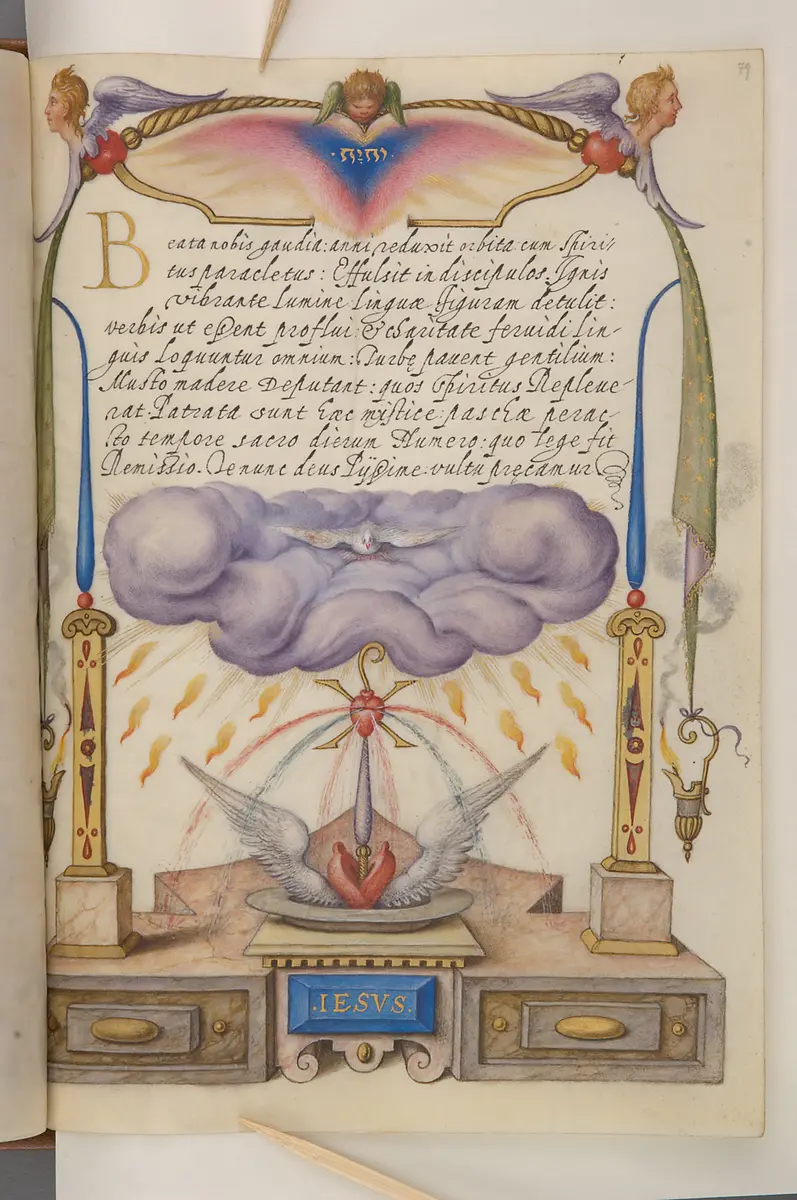 79
יהוה
Beata nobis gaudia: anni reduxit orbita: cum Spiri-
tus paracletus: Effulsit in discipulos. Ignis
vibrante lumine linguæ figuram detulit:
verbis ut essent proflui: & charitate fervidi Lin-
guis loquuntur omnium: Turbę pavent gentilium:
Musto madere Deputant: quos Spiritus Repleve-
rat. Patrata sunt hæc mistice: paschæ perac-
to tempore sacro dierum Numero: quo lege fit
Remissio. Te nunc deus Pijssime: vultu pręcamur
.IESVS.